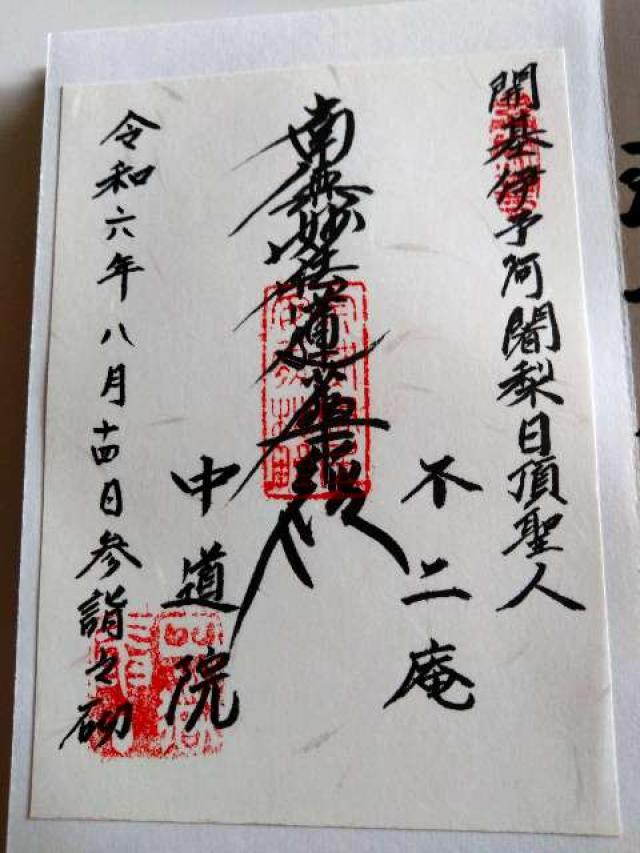 開基伊予阿闍梨日頂聖人
不二庵
南無妙法蓮華経
中道院
令和六年八月十四日参詣之砌